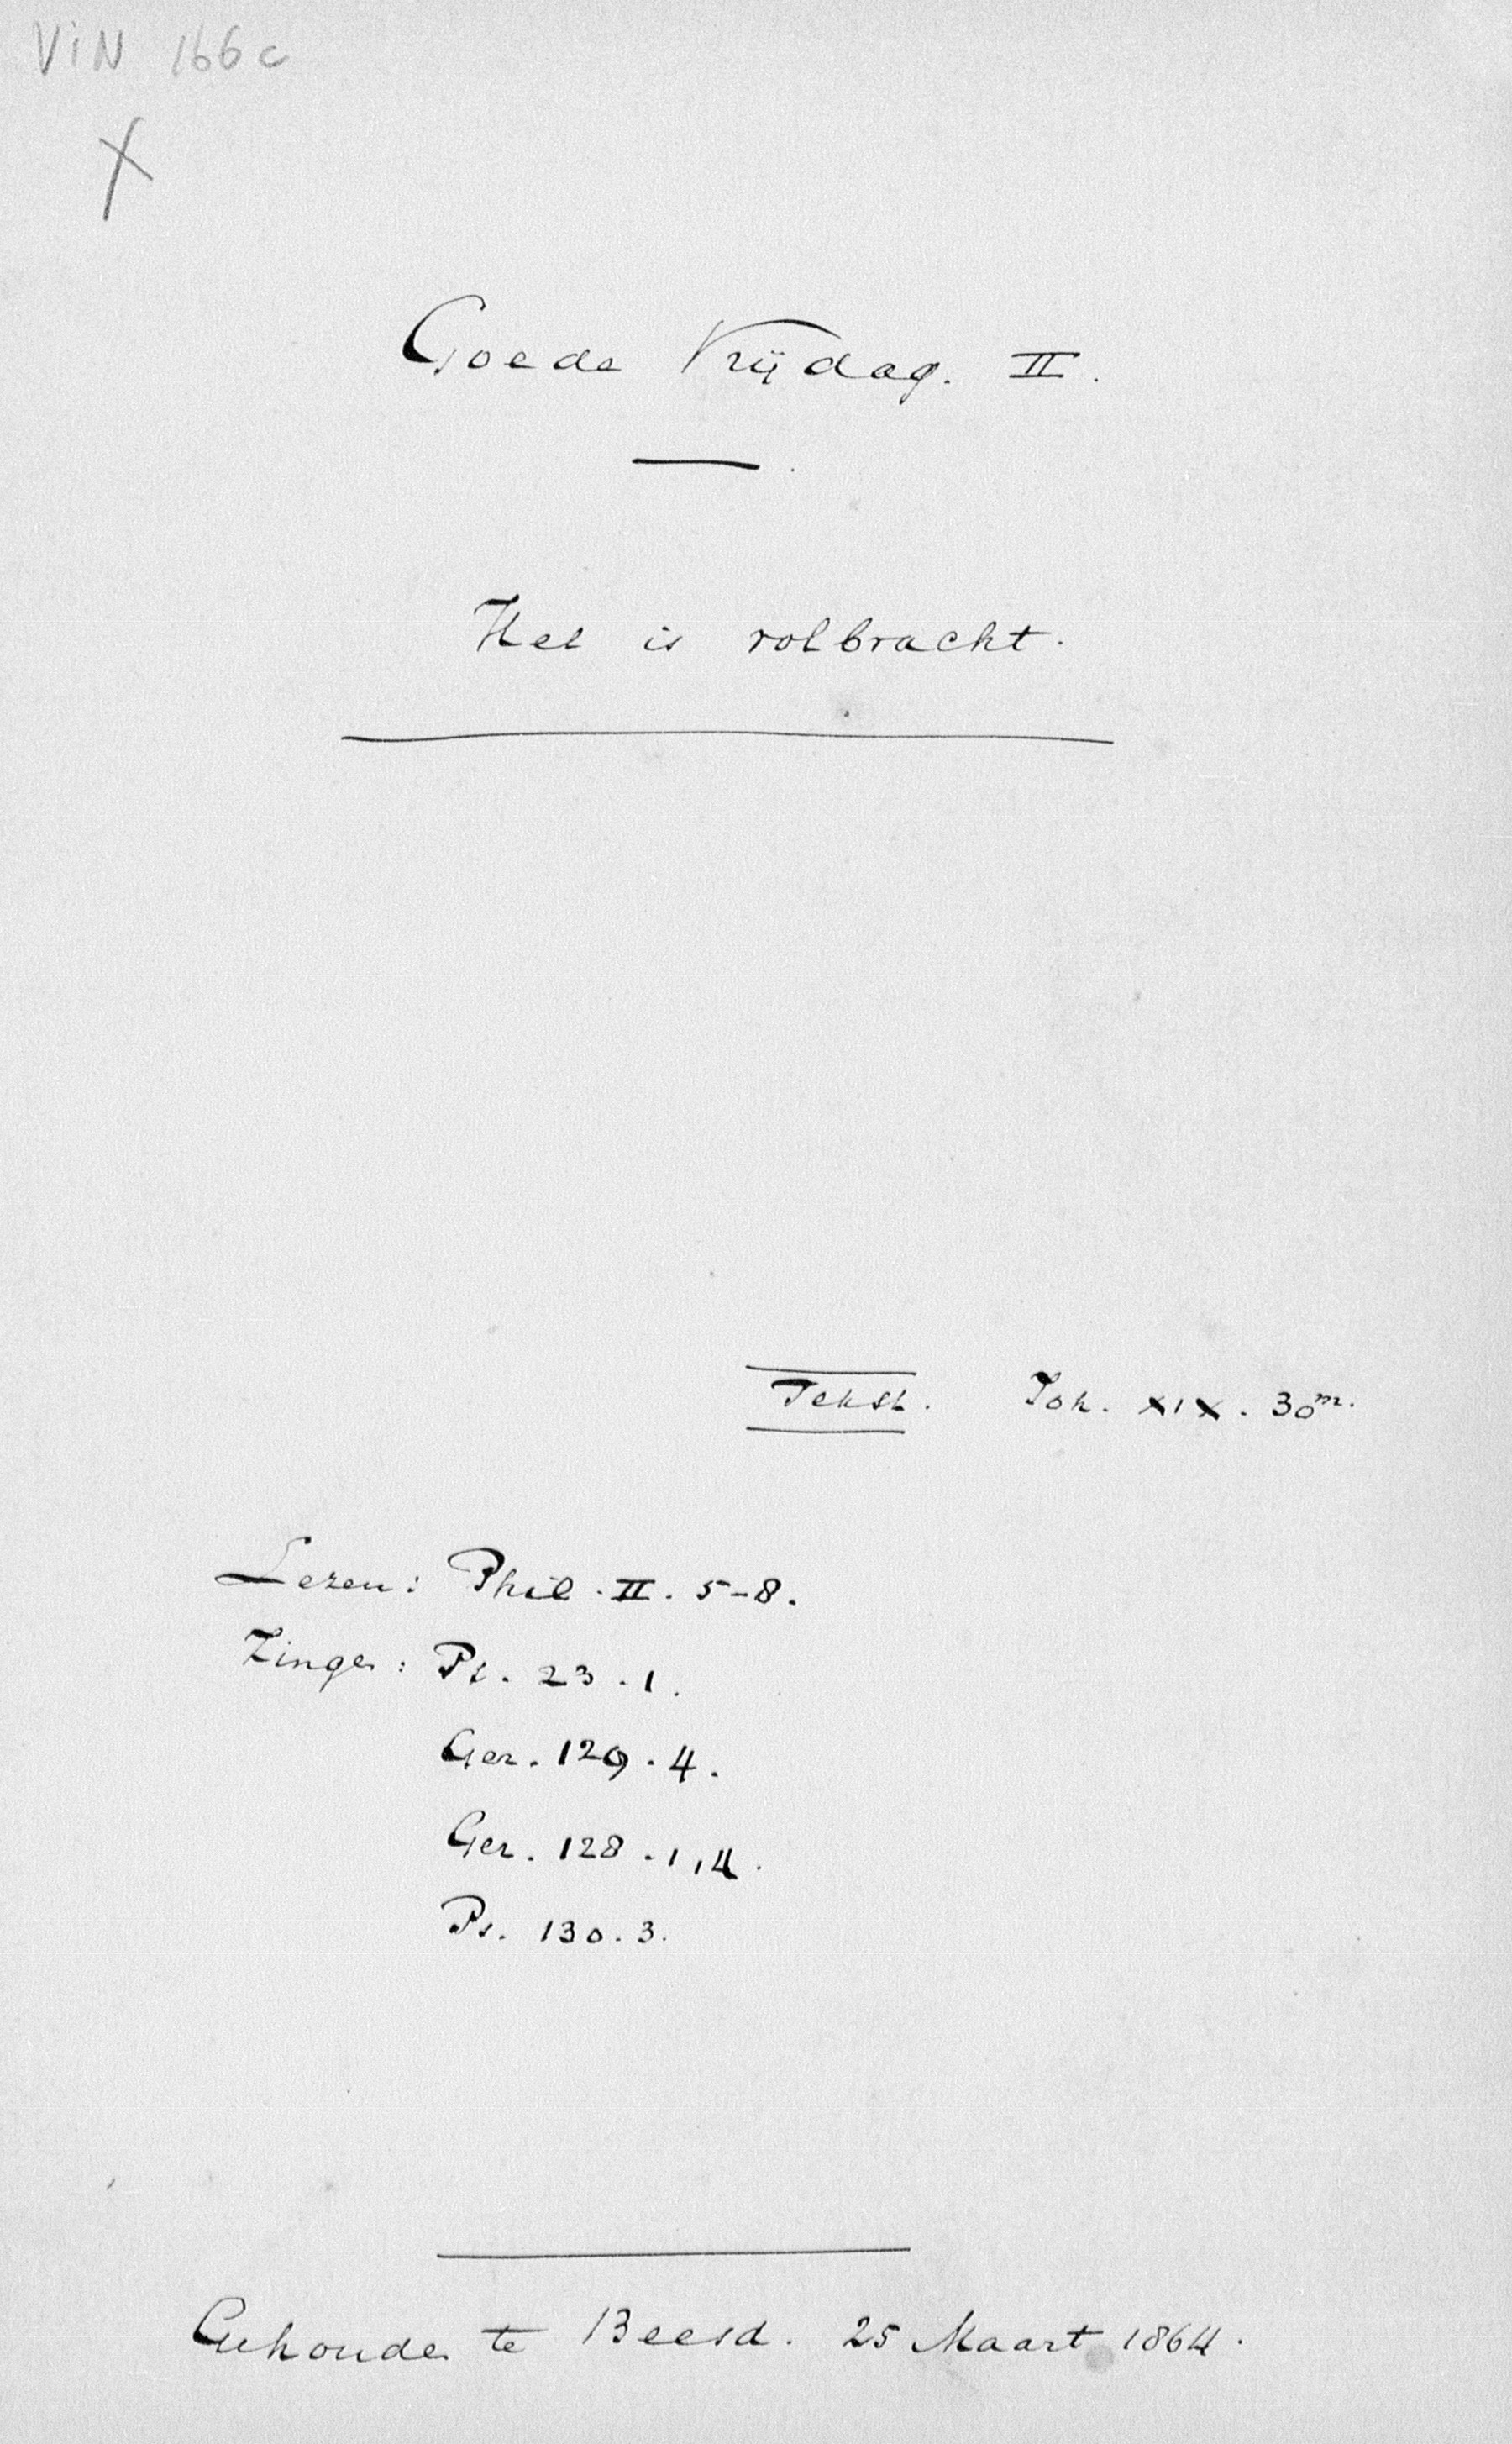 ViN 166c
X
Goede Vrijdag. II.
Het is volbracht.
Tekst. Joh. XIX. 30m.
Lezen: Phil. II. 5-8.
Zingen: Ps. 23.1.
Gez. 129.4.
Gez. 128.1,4.
Ps. 130.3.
Gehouden te Beesd. 25 Maart 1864.